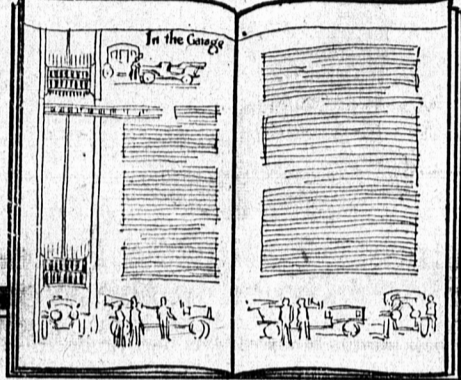 In the Garage